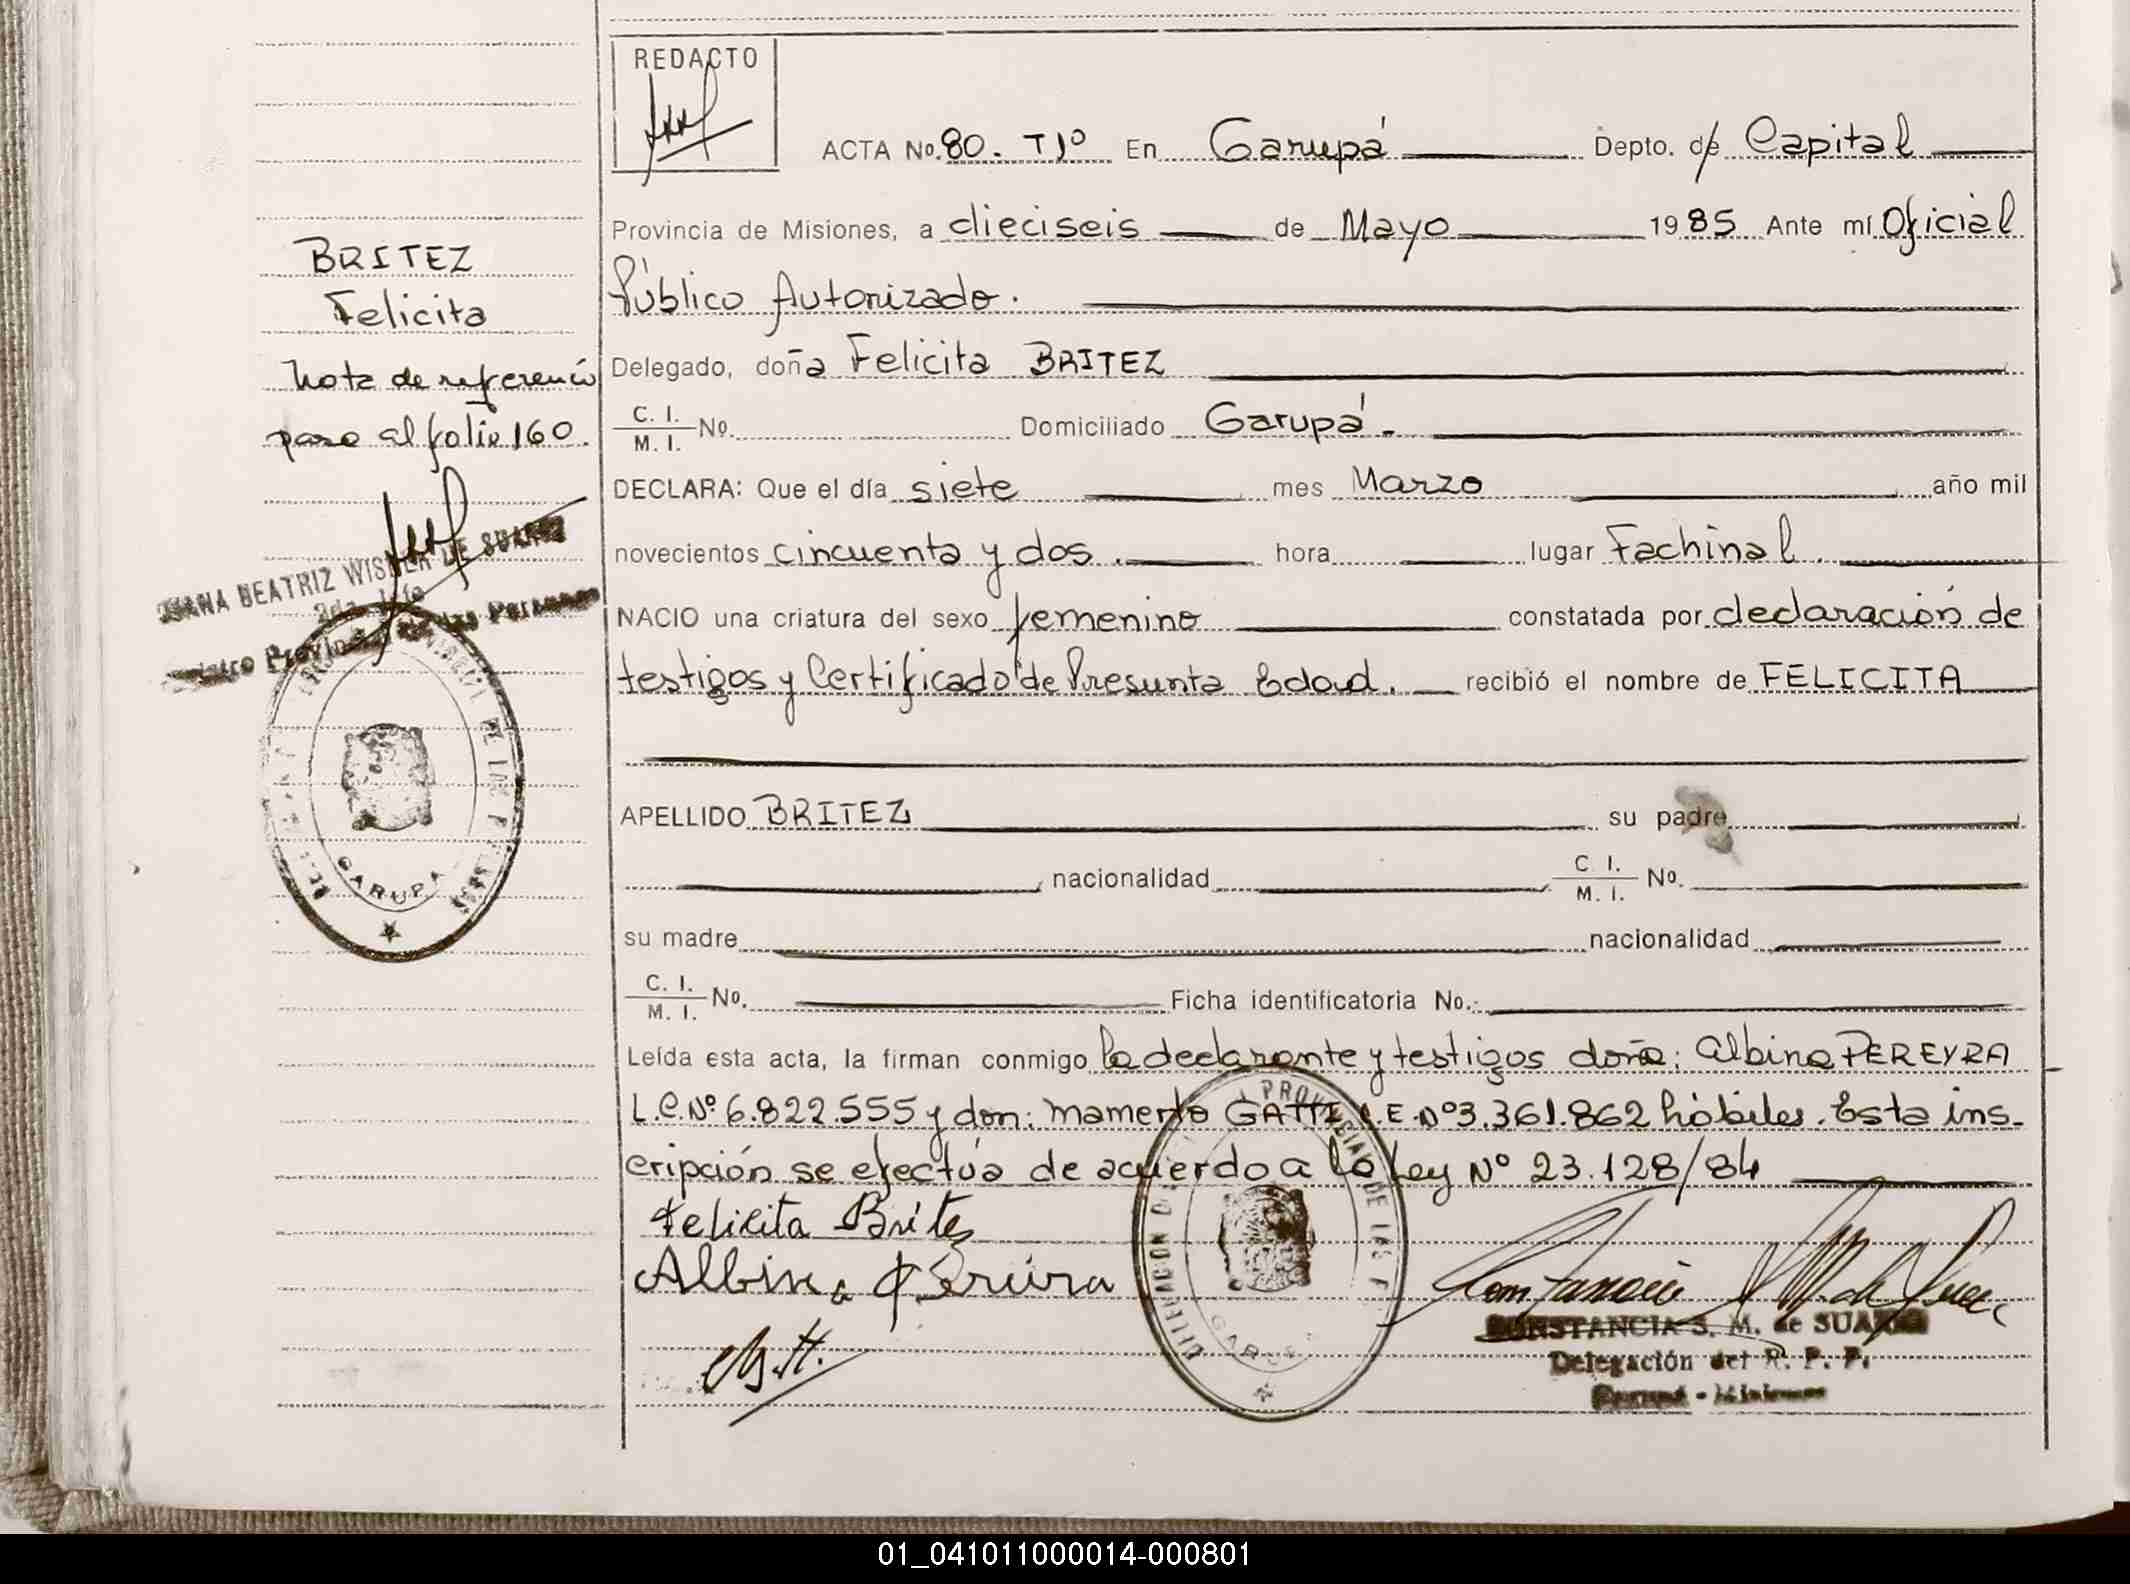 REDACTO
ACTA No. 80. Tº Iº En Garupá Depto. de Capital
Provincia de Misiones, a dieciseis de Mayo 1985 Ante mí Oficial
Público Autorizado.
Delegado, doña Felicita BRITEZ
C. I.
M. I. No. Domiciliado Garupá.
DECLARA: Que el día siete mes Marzo año mil
novecientos cincuenta y dos. hora lugar Fachinal.
NACIO una criatura del sexo femenino constatada por declaración de
testigos y Certificado de Presunta Edad. recibió el nombre de FELICITA
APELLIDO BRITEZ su padre
nacionalidad C. I.
M. I. No.
su madre nacionalidad
C. I.
M. I. No. Ficha identificatoria No.:
Leída esta acta, la firman conmigo la declarante y testigos doña: Albina PEREYRA
L.C.Nº 6.822.555 y don: Mamerto GATTI L.E.Nº 3.361.862 hábiles. Esta ins-
cripción se efectúa de acuerdo a la Ley Nº 23.128/84
Felicita Britez
Albina
CONSTANCIA S. M. de SUAREZ
Delegación del R. P. P.
Garupá - Misiones
DELEGACION PROVINCIAL DE LAS
GARUPA
BRITEZ
Felicita
Nota de referencia
pasa al folio 160.
JUANA BEATRIZ DE SUAREZ
Registro Provincial de las Personas
DE LAS
GARUPA
01_041011000014-000801